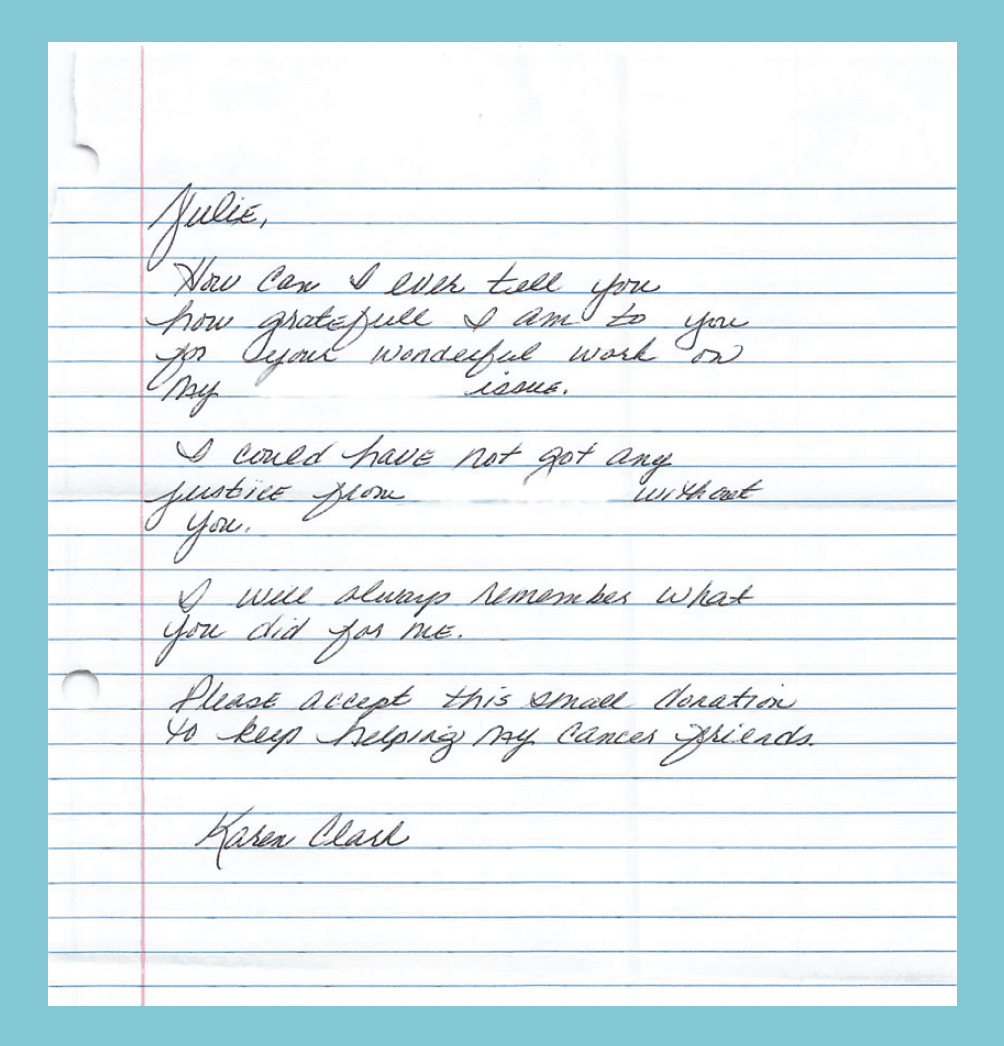 Julie,
How can I ever tell you
how gratefull I am to you
for your wonderful work on
my issue.
I could have not got any
justice from without
you.
I will always remember what
you did for me.
Please accept this small donation
to keep helping my cancer friends.
Karen Clark